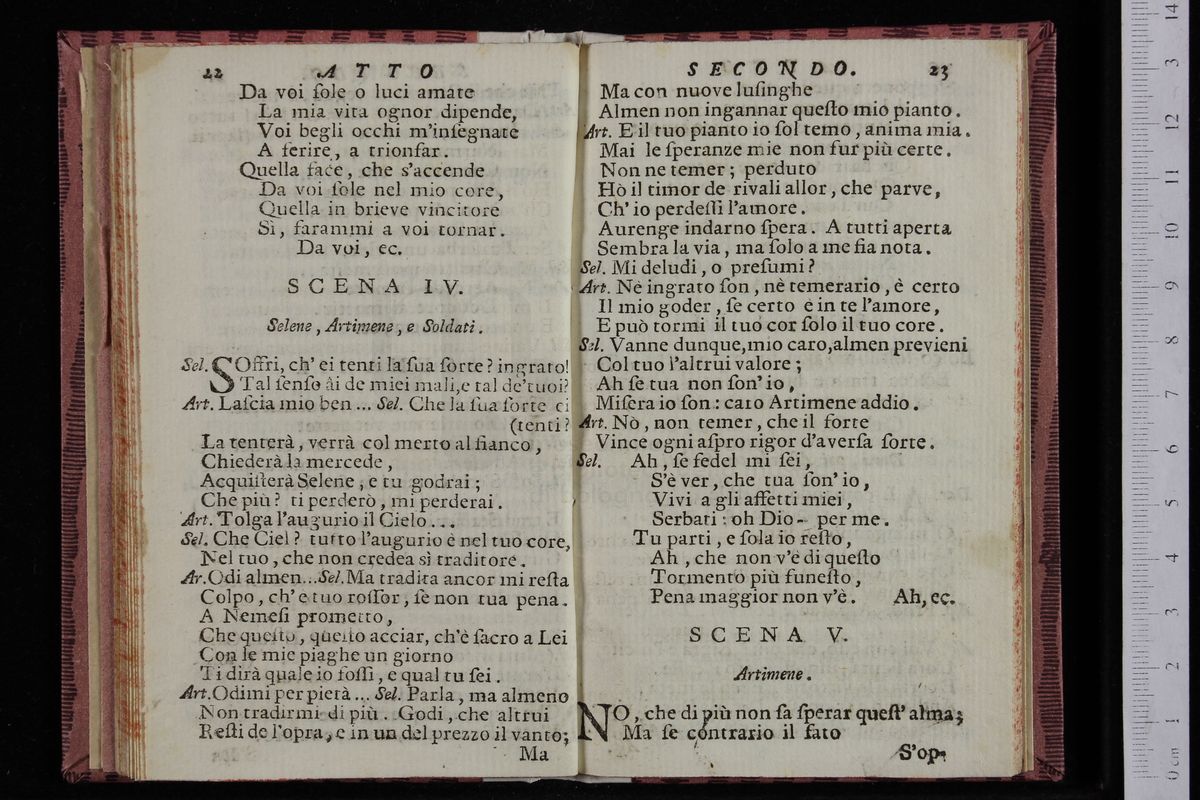 22 ATTO
Da voi ſole o luci amate
La mia vita ognor dipende,
Voi begli occhi m'inſegnate
A ferire, a trionfar.
Quella face, che s'accende
Da voi ſole nel mio core,
Quella in brieve vincitore
Sì, farammi a voi tornar.
Da voi, ec.
SCENA IV.
Selene, Artimene, e Soldati.
Sel. SOffri, ch' ei tenti la ſua ſorte? ingrato!
Tal ſenſo ài de miei mali, e tal de' tuoi?
Art. Laſcia mio ben ... Sel. Che la ſua ſorte ei
(tenti?
La tenterà, verrà col merto al fianco,
Chiederà la mercede,
Acquiſterà Selene, e tu godrai;
Che più? ti perderò, mi perderai.
Art. Tolga l'augurio il Cielo...
Sel. Che Ciel? tutto l'augurio è nel tuo core,
Nel tuo, che non credea sì traditore.
Ar. Odi almen...Sel. Ma tradita ancor mi reſta
Colpo, ch' e tuo roſſor, ſe non tua pena.
A Nemeſi prometto,
Che queſto, queſto acciar, ch'è ſacro a Lei
Con le mie piaghe un giorno
Ti dirà quale io foſſi, e qual tu ſei.
Art. Odimi per pietà ... Sel. Parla, ma almeno
Non tradirmi di più. Godi, che altrui
Reſti de l'opra, e in un del prezzo il vanto;
Ma
SECONDO. 23
Ma con nuove luſinghe
Almen non ingannar queſto mio pianto.
Art. E il tuo pianto io ſol temo, anima mia.
Mai le ſperanze mie non fur più certe.
Non ne temer; perduto
Hò il timor de rivali allor, che parve,
Ch' io perdeſſi l'amore.
Aurenge indarno ſpera. A tutti aperta
Sembra la via, ma ſolo a me fia nota.
Sel. Mi deludi, o preſumi?
Art. Nè ingrato ſon, nè temerario, è certo
Il mio goder, ſe certo è in te l'amore,
E può tormi il tuo cor ſolo il tuo core.
Sel. Vanne dunque, mio caro, almen previeni
Col tuo l'altrui valore;
Ah ſe tua non ſon' io,
Miſera io ſon: caro Artimene addio.
Art. Nò, non temer, che il forte
Vince ogni aſpro rigor d'averſa ſorte.
Sel. Ah, ſe fedel mi ſei,
S'è ver, che tua ſon' io,
Vivi a gli affetti miei,
Serbati: oh Dio - per me.
Tu parti, e ſola io reſto,
Ah, che non v'è di queſto
Tormento più funeſto,
Pena maggior non v'è. Ah, ec.
SCENA V.
Artimene.
NO, che di più non ſa ſperar queſt' alma;
Ma ſe contrario il fato
S'op-